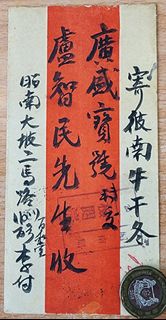 寄彼南牛干冬
廣盛寶號轉交
盧智民先生收
昭南大坡二馬路
李付